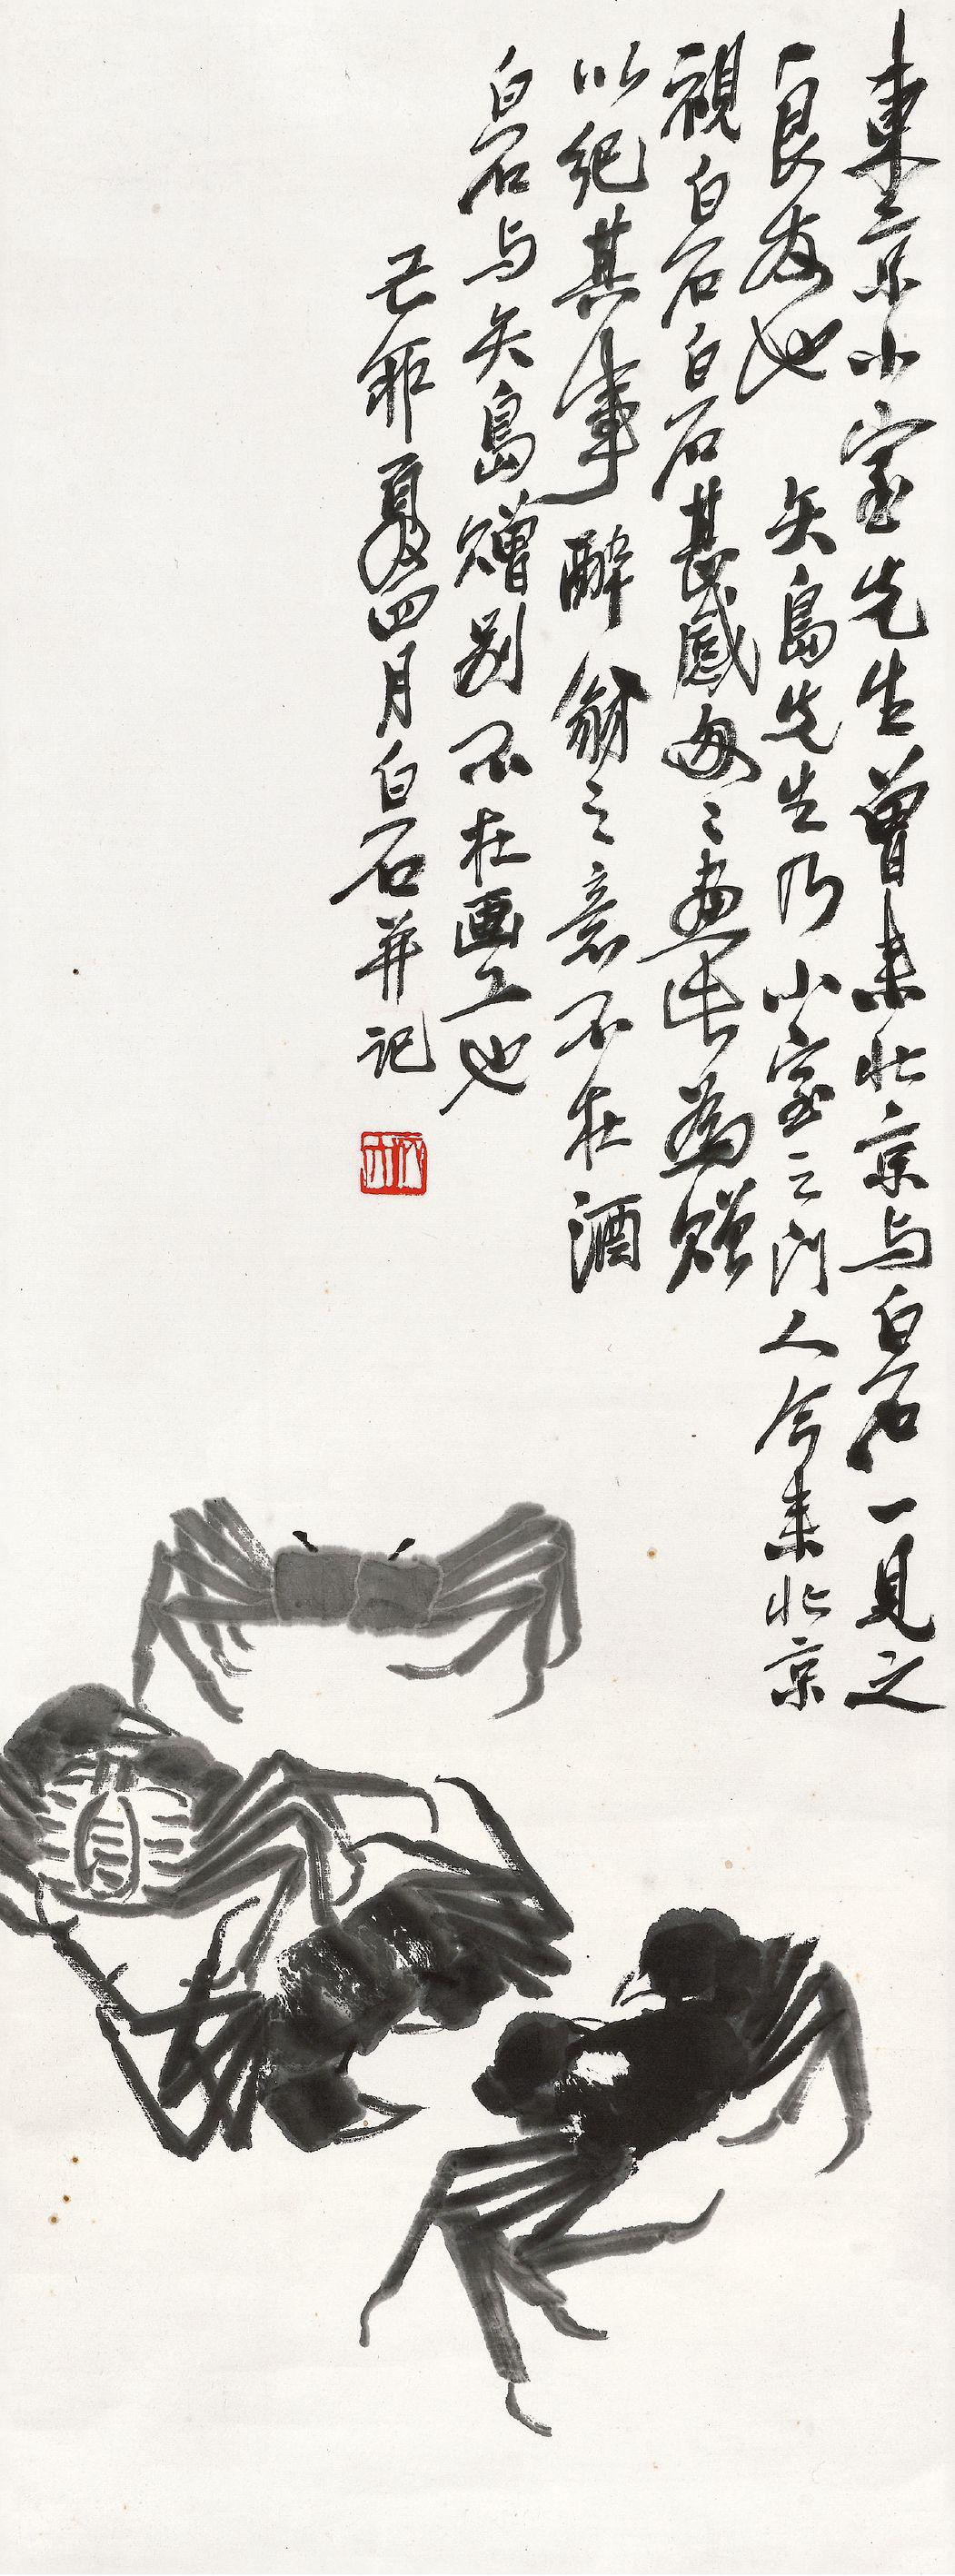 東京小室先生曾来北京与白石一見之
一良友也 矢島先生乃小室之門人今来北京
視白石白石甚感每々畫此為贈
以紀其事醉翁之意不在酒
白石与矢島贈别不在画工也
己邜夏四月白石并记
木人